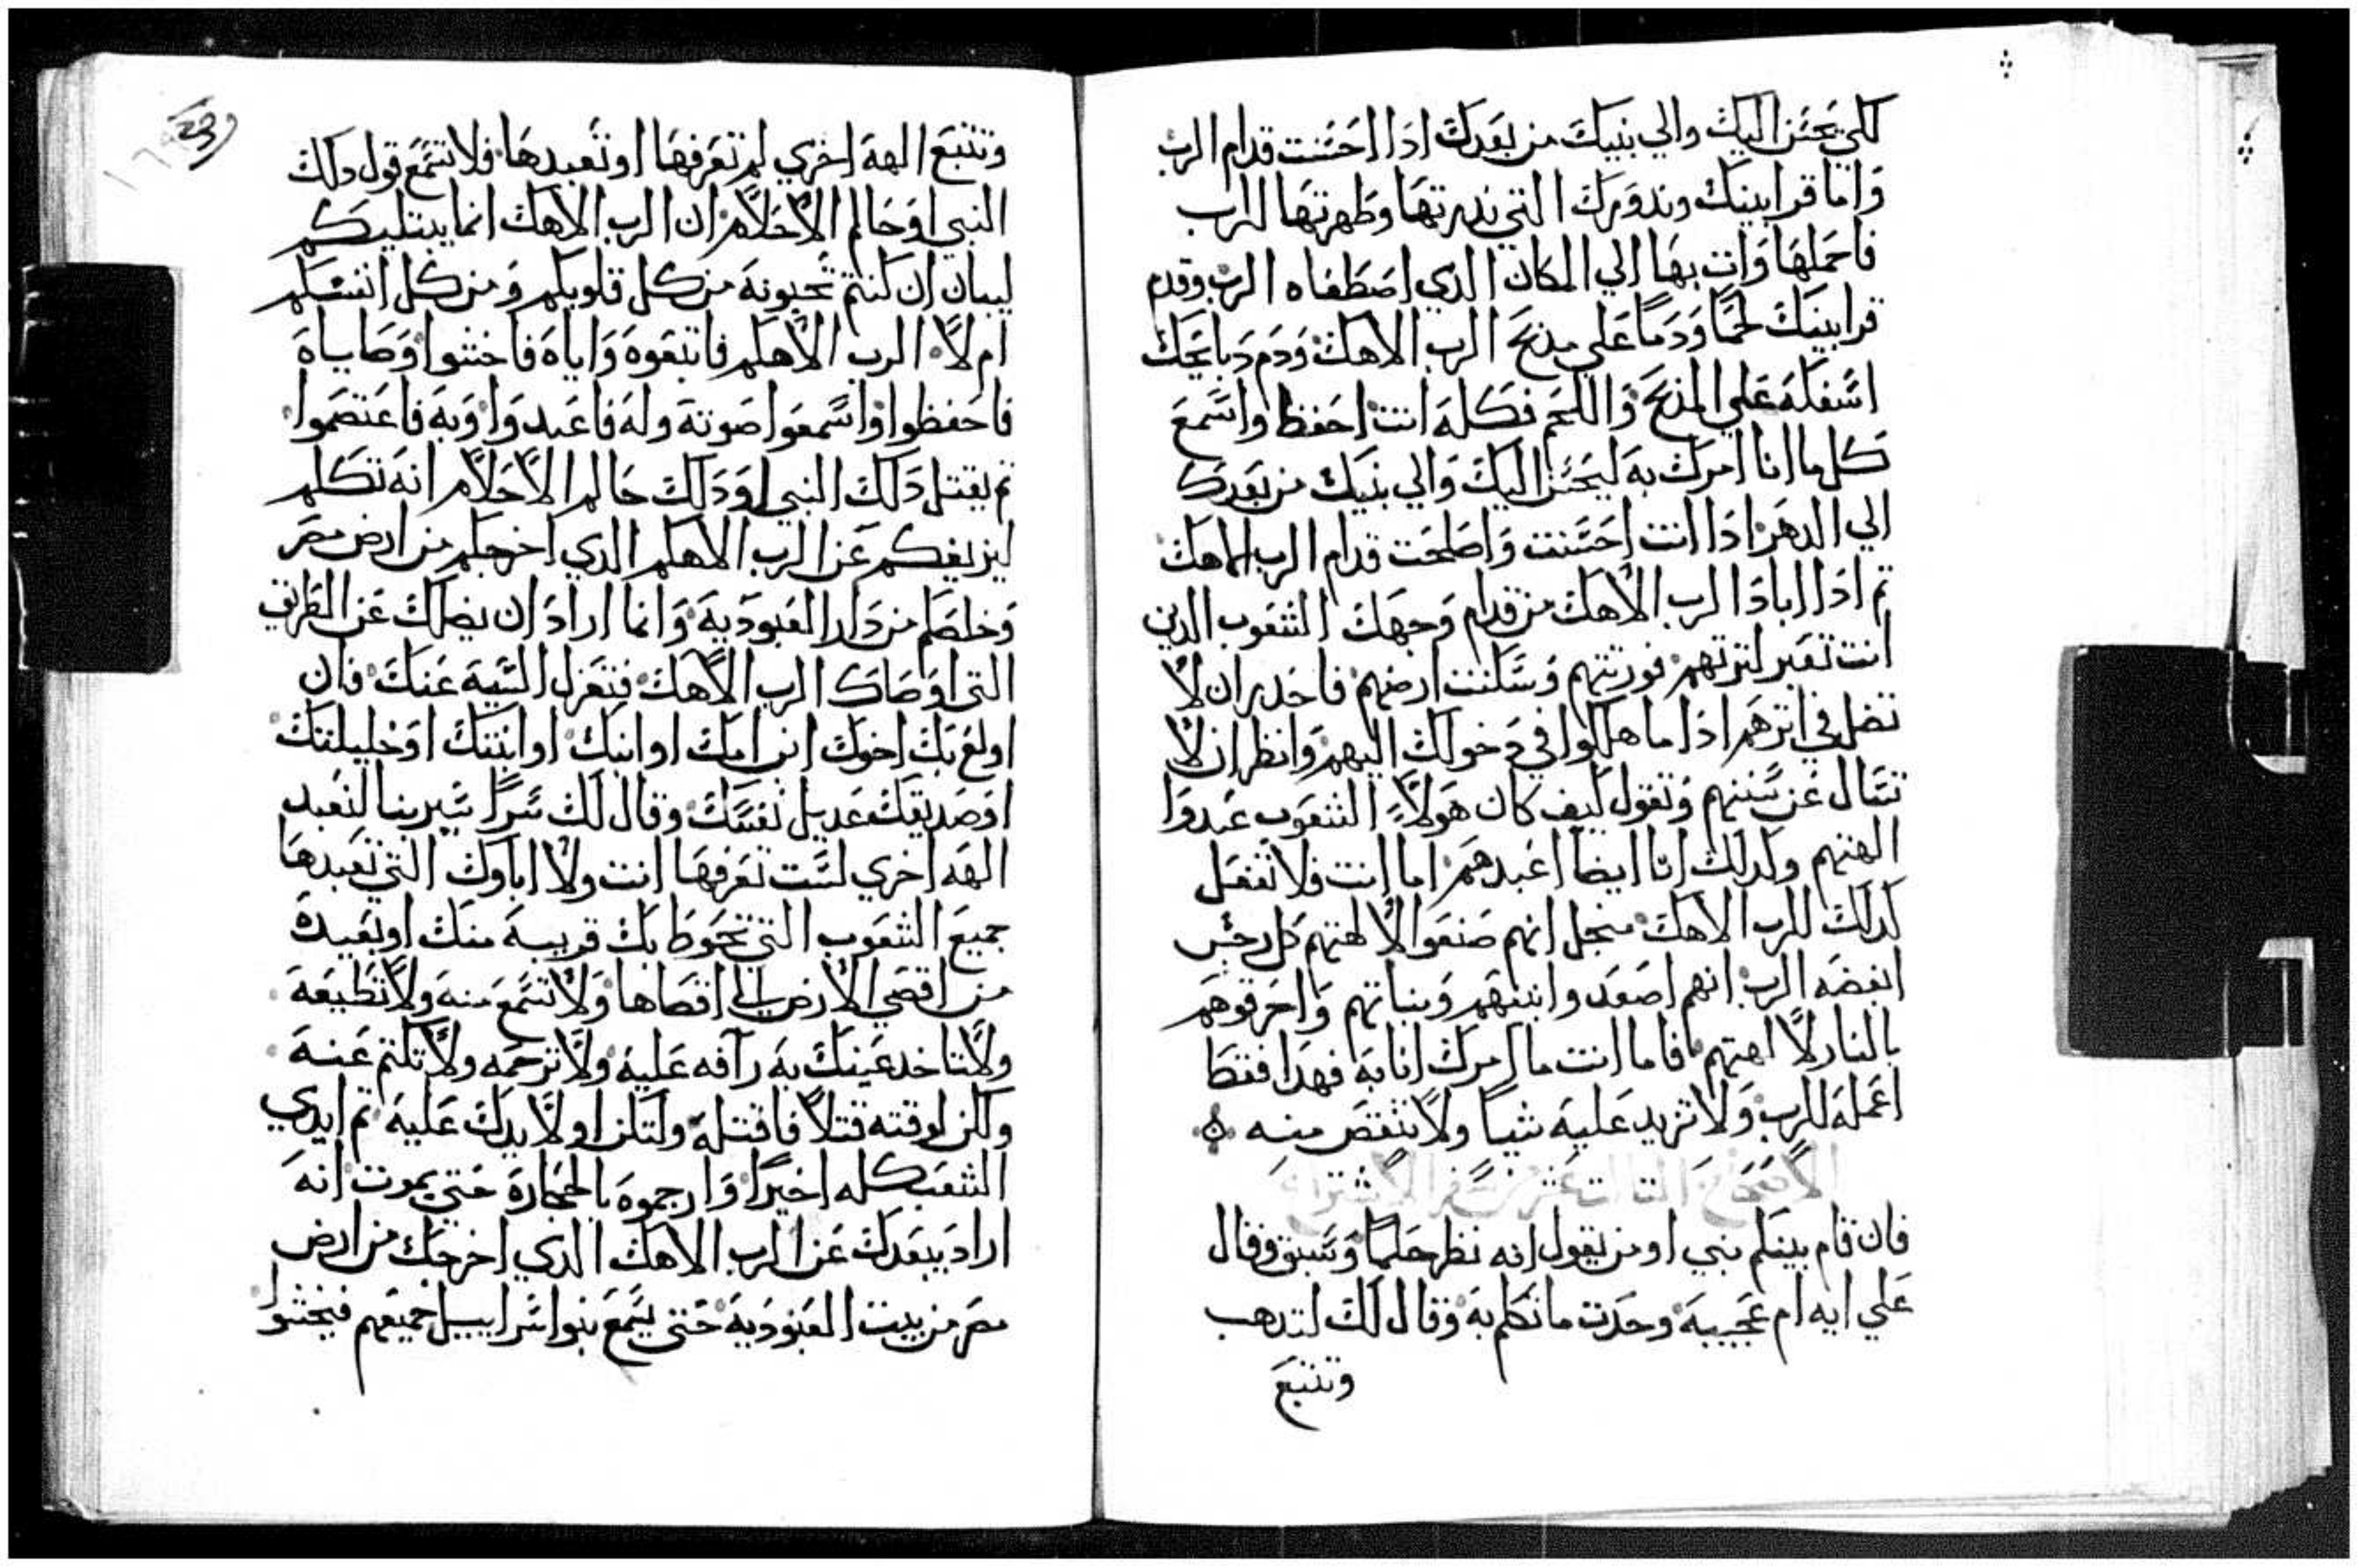 لكي يحسن اليك والي بنيك من بعدك ادا احسنت قدام الرب
واما قرابينك وندورك التي ندرتها وطهرتها للرب
فاحملها وات بها الي المكان الدي اصطفاه الرب وقدم
قرابينك لحما ودما علي مدبح الرب الاهك ودم دبايحك
اسفكه علي المدبح واللحم فكله انت احفظ واسمع
كل ما انا امرك به ليحسن اليك والي بنيك من بعدك
الي الدهر ادا انت احسنت واصلحت قدام الرب الاهك
تم ادا اباد الرب الاهك من قدام وجهك الشعوب الدين
انت تعبر لترتهم فورتتهم وسكنت ارضهم فاحدر ان لا
تضل في اترهم ادا ما هلكوا في دخولك اليهم وانظر ان لا
تسال عن سننهم وتقول كيف كان هولاء الشعوب عبدوا
الهتهم وكدلك انا ايضا اعبدهم اما انت فلا تفعل
كدلك للرب الاهك منجل انهم صنعوا لالهتهم كل رجس
ابغضه الرب انهم اصعدوا بنيهم وبناتهم واحرقوهم
بالنار لالهتهم فاما انت ما امرك انا به فهدا فقط
اعمله للرب ولا تزيد عليه شيا ولا تنقص منه
الاصحاح التالت عشر من سفر الاستتنا
فان قام بينكم نبي او من يقول انه نظر حلما وسبق وقال
علي ايه ام عجيبه وحدت ما تكلم به وقال لك لتدهب
وتتبع
وتتبع الهه اخري لم تعرفها او تعبدها فلا تسمع قول دلك
النبي او حالم الاحلام ان الرب الاهك انما يبتليكم
ليبان ان كنتم تحبونه من كل قلوبكم ومن كل انفسكم
ام لا الرب الاهكم فاتبعوه واياه فاخشوا وصاياه
فاحفظوا واسمعوا صوته وله فاعبدوا وبه فاعتصموا
تم يقتل دلك النبي او دلك حالم الاحلام انه تكلم
ليزيغكم عن الرب الاهكم الدي اخرجكم من ارض مصر
وخلصكم من دار العبوديه وانما اراد ان يضلك عن الطريق
التي اوصاك الرب الاهك فتعزل السيه عنك فان
اولع بك اخوك ابن امك او ابنك او ابنتك او خليلتك
او صديقك عديل نفسك وقال لك سرا سير بنا لنعبد
الهه اخري لست تعرفها انت ولا اباوك التي تعبدها
جميع الشعوب التي تحوط بك قريبه منك او بعيدة
من اقصي الارض الي اقصاها ولا تسمع منه ولا تطيعه
ولا تاخد عينك به رآفه عليه ولا ترحمه ولا تكتم عنه
ولكن لوقته قتلا فاقتله ولتكن اولا يدك عليه تم ايدي
الشعب كله اخيرا وارجموه بالحجارة حتي يموت انه
اراد يبعدك عن الرب الاهك الدي اخرجك من ارض
مصر من بيت العبوديه حتي يسمع بنوا سراييل جميعهم فيخشوا